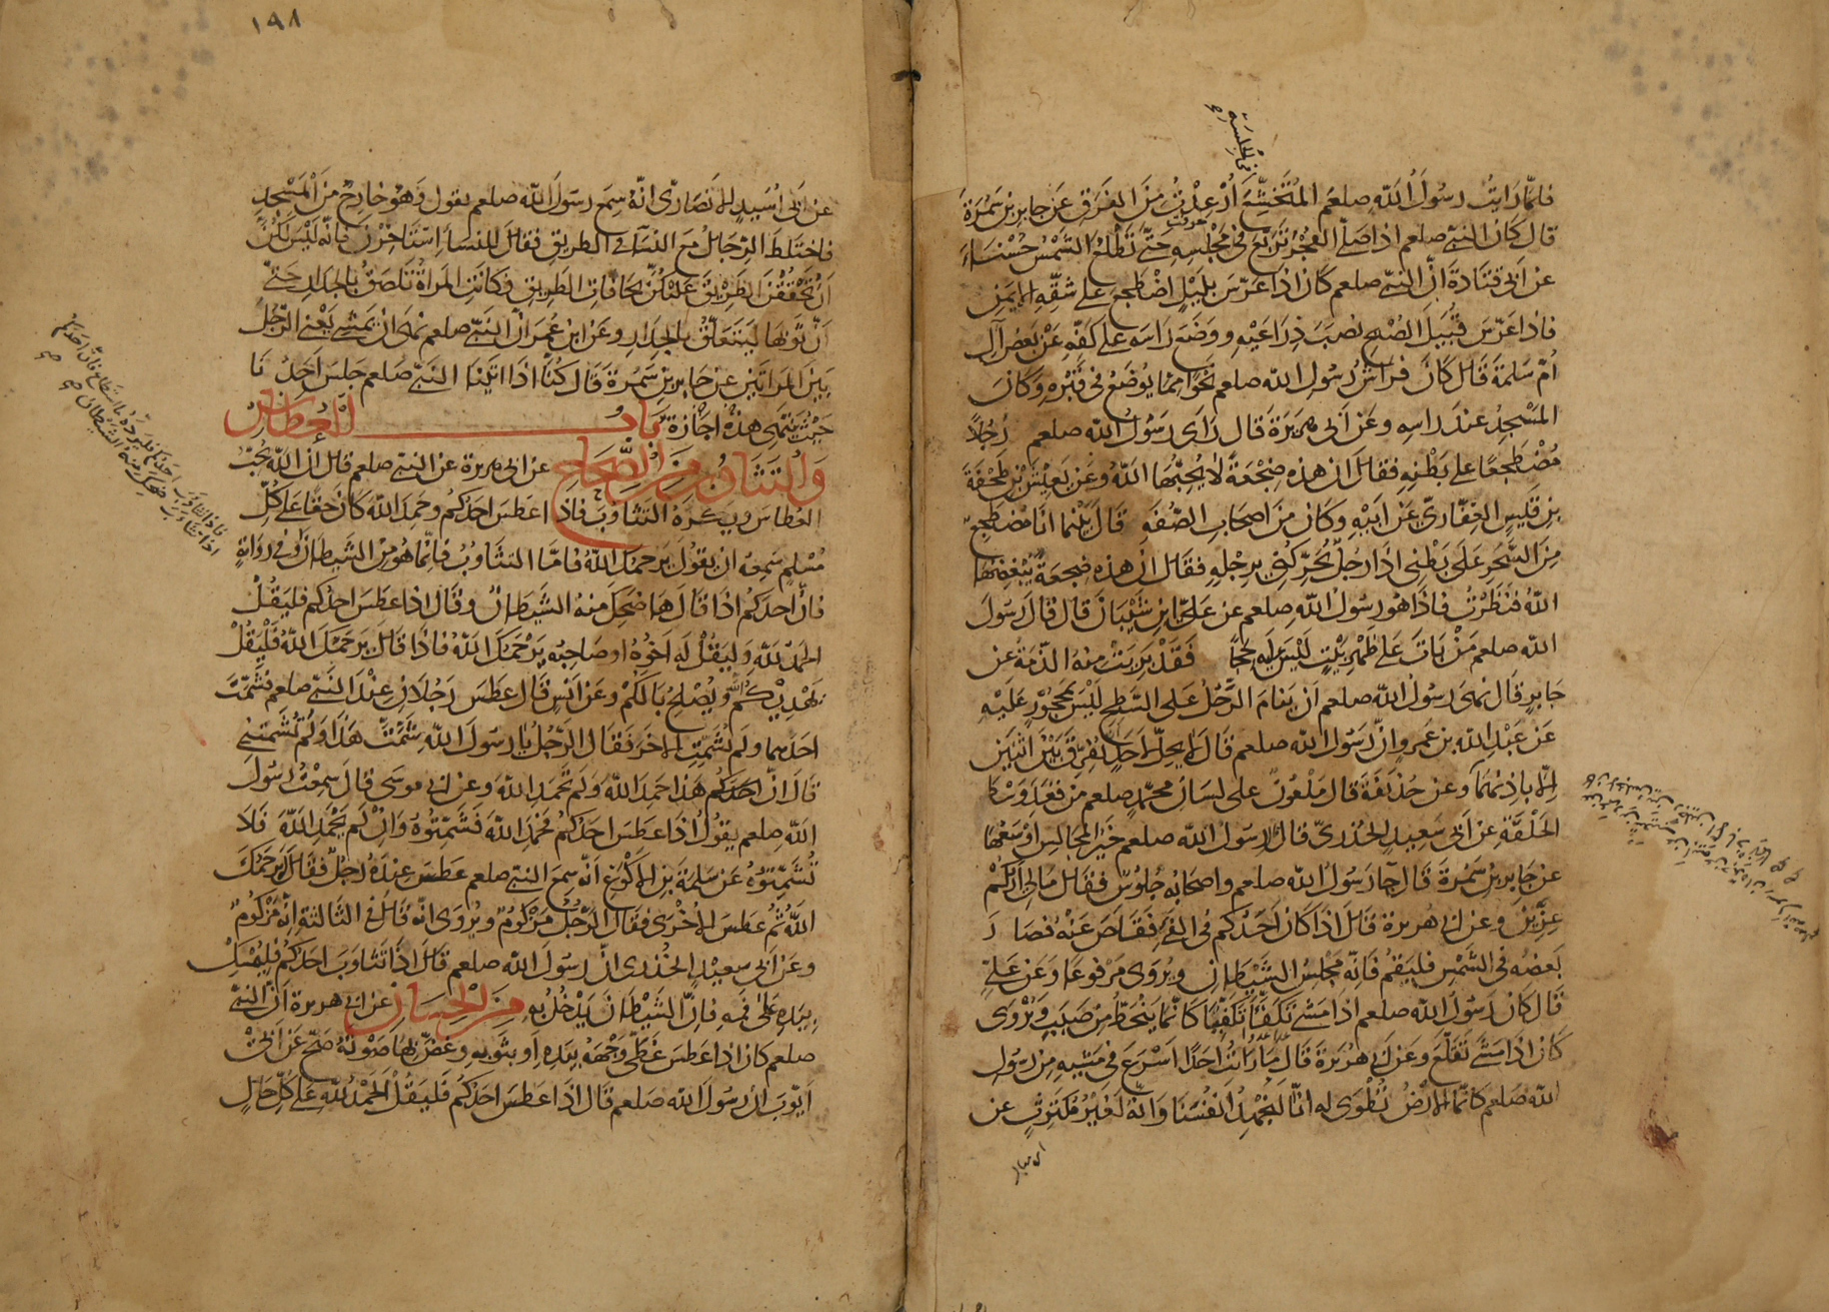 فلما رايت رسول الله صلعم المتخشع أرعدت من الفرق عن جابر بن سمرة
قال كان النبي صلعم اذا صلى الفجر تربع في مجلسه حتى تطلع الشمس حسناء
عن ابي قتادة ان النبي صلعم كان اذا عرس بليل اضطجع على شقه الايمن
فاذا عرس قبيل الصبح نصب ذراعيه ووضع راسه على كفه عن بعض آل
ام سلمة قال كان فراش رسول الله صلعم نحوا مما يوضع في قبره وكان
المسجد عند راسه وعن ابي هريرة قال راى رسول الله صلعم رجلا
مضطجعا على بطنه فقال ان هذه ضجعة لا يحبها الله وعن يعيش بن طخفة
بن قيس الغفاري عن ابيه وكان من اصحاب الصفه قال بينما انا مضطجع
من السحر على بطني اذا رجل يحركني برجله فقال ان هذه ضجعة يبغضها
الله فنظرت فاذا هو رسول الله صلعم عن علي ابن شيبان قال قال رسول
الله صلعم من بات على ظهر بيت ليس عليه حجا فقد برئت منه الذمة عن
جابر قال نهى رسول الله صلعم ان ينام الرجل على السطح ليس بمحجور عليه
عن عبد الله بن عمرو ان رسول الله صلعم قال لا يحل لاحد يفرق بين اثنين
الا باذنهما وعن حذيفة قال ملعون على لسان محمد صلعم من قعد وسط
الحلقة عن ابي سعيد الخدري قال قال رسول الله صلعم خير المجالس اوسعها
عن جابر بن سمرة قال جاء رسول الله صلعم واصحابه جلوس فقال مالي اراكم
عزين وعن ابي هريرة قال اذا كان احدكم في الفيء فقلص عنه فصار
بعضه في الشمس فليقم فانه مجلس الشيطان ويروى مرفوعا وعن علي
قال كان رسول الله صلعم اذا مشى تكفأ تكفيا كانما ينحط من صبب ويروى
كان اذا مشى تقلع وعن ابي هريرة قال ما رأيت احدا اسرع في مشيه من رسول
الله صلعم كانما الارض تطوى له انا لنجهد انفسنا وانه لغير مكترث عن
١٩٨
عن ابي اسيد الانصاري انه سمع رسول الله صلعم يقول وهو خارج من المسجد
فاختلط الرجال مع النساء في الطريق فقال للنساء استاخرن فانه ليس لكن
ان تحققن الطريق عليكن بحافات الطريق فكانت المراة تلصق بالجدار حتى
ان ثوبها ليتعلق بالجدار وعن ابن عمر ان النبي صلعم نهى ان يمشي يعني الرجل
بين المراتين عن جابر بن سمرة قال كنا اذا اتينا النبي صلعم جلس احدنا
حيث ينتهي هذه اجازة باب العطاس
والتثاوب من الصحاح عن ابي هريرة عن النبي صلعم قال ان الله يحب
العطاس ويكره التثاوب فاذا عطس احدكم وحمد الله كان حقا على كل
مسلم سمعه ان يقول يرحمك الله فاما التثاوب فانما هو من الشيطان وفي رواية
فان احدكم اذا قال ها ضحك منه الشيطان وقال اذا عطس احدكم فليقل
الحمد لله وليقل له اخوه او صاحبه يرحمك الله فاذا قال يرحمك الله فليقل
يهديكم الله ويصلح بالكم وعن انس قال عطس رجلان عند النبي صلعم فشمت
احدهما ولم يشمت الاخر فقال الرجل يا رسول الله شمت هذا ولم تشمتني
قال ان احدكم هذا حمد الله ولم تحمد الله وعن ابي موسى قال سمعت رسول
الله صلعم يقول اذا عطس احدكم فحمد الله فشمتوه وان لم يحمد الله فلا
تشمتوه عن سلمة بن الاكوع انه سمع النبي صلعم عطس عنده رجل فقال يرحمك
الله ثم عطس الاخرى فقال الرجل مزكوم ويروى انه قال في الثالثة انه مزكوم
وعن ابي سعيد الخدري ان رسول الله صلعم قال اذا تثاوب احدكم فليمسك
بيده على فمه فان الشيطان يدخل به من الحسان عن ابي هريرة ان النبي
صلعم كان اذا عطس غطى وجهه بيده او بثوبه وغض بها صوته صح عن ابي
ايوب ان رسول الله صلعم قال اذا عطس احدكم فليقل الحمد لله على كل حال